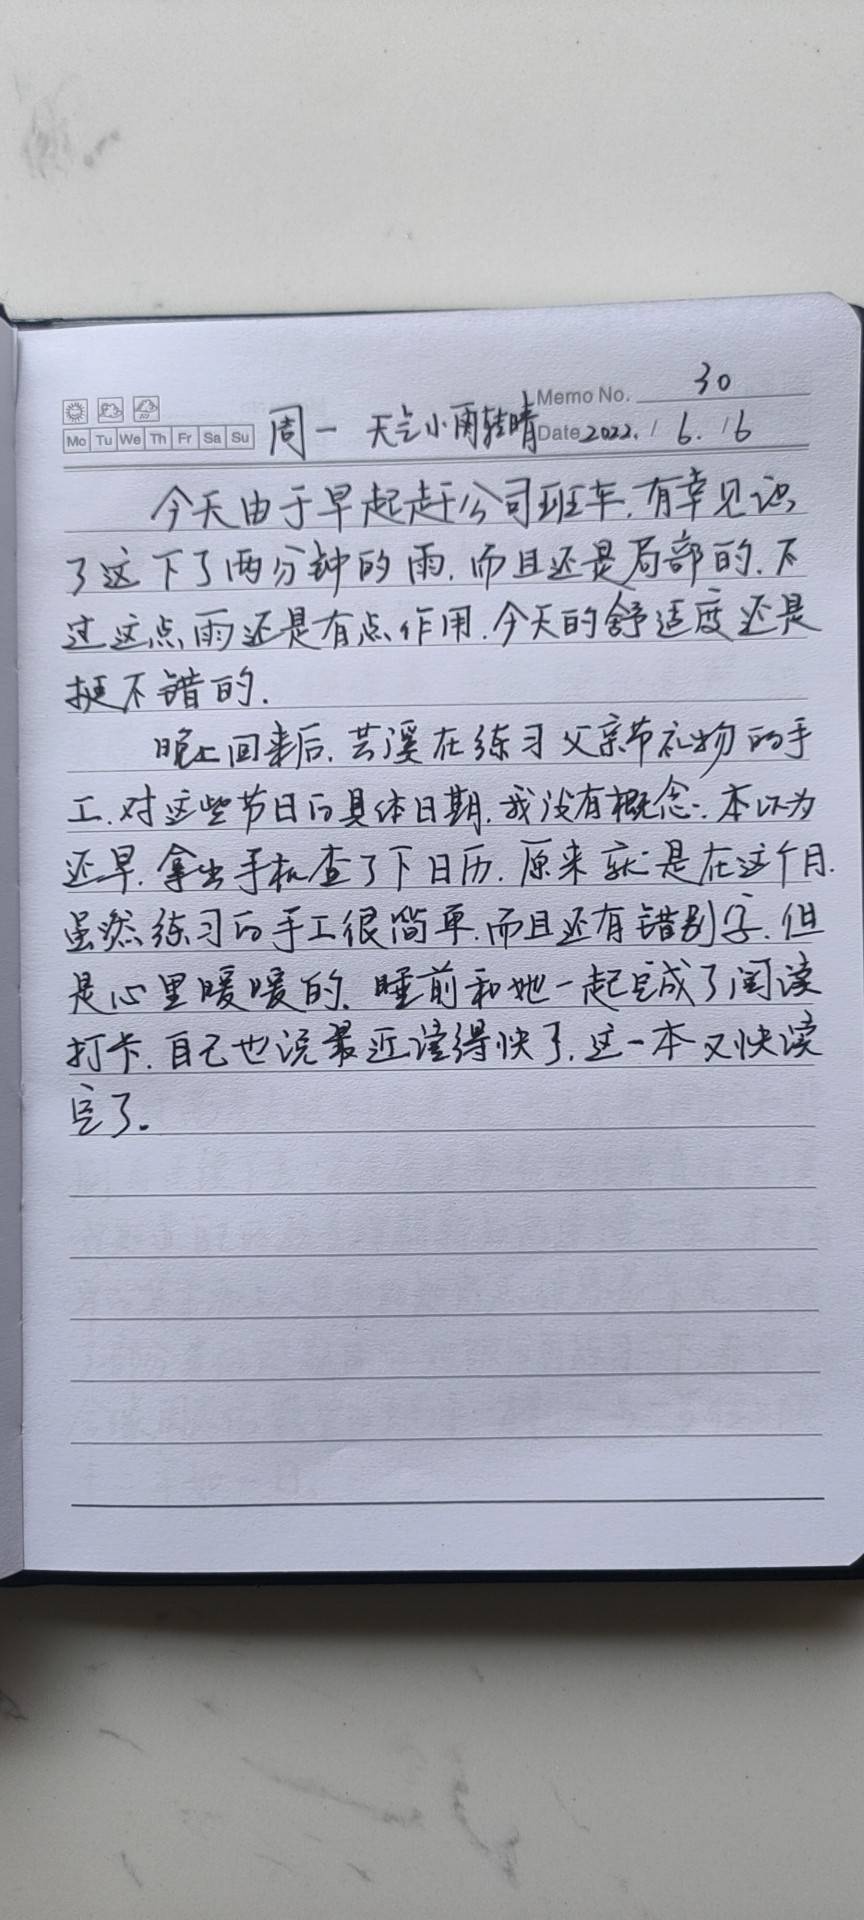 Memo No. 30
Mo Tu We Th Fr Sa Su 周一 天气小雨转晴 Date 2022. / 6. /6
今天由于早起赶公司班车,有幸见识
了这下了两分钟的雨,而且还是局部的,不
过这点雨还是有点作用,今天的舒适度还是
挺不错的.
晚上回来后,芸溪在练习父亲节礼物的手
工,对这些节日的具体日期,我没有概念.本以为
还早,拿出手机查了下日历,原来就是在这个月.
虽然练习的手工很简单,而且还有错别字,但
是心里暖暖的.睡前和她一起完成了阅读
打卡,自己也说最近读得快了,这一本又快读
完了。